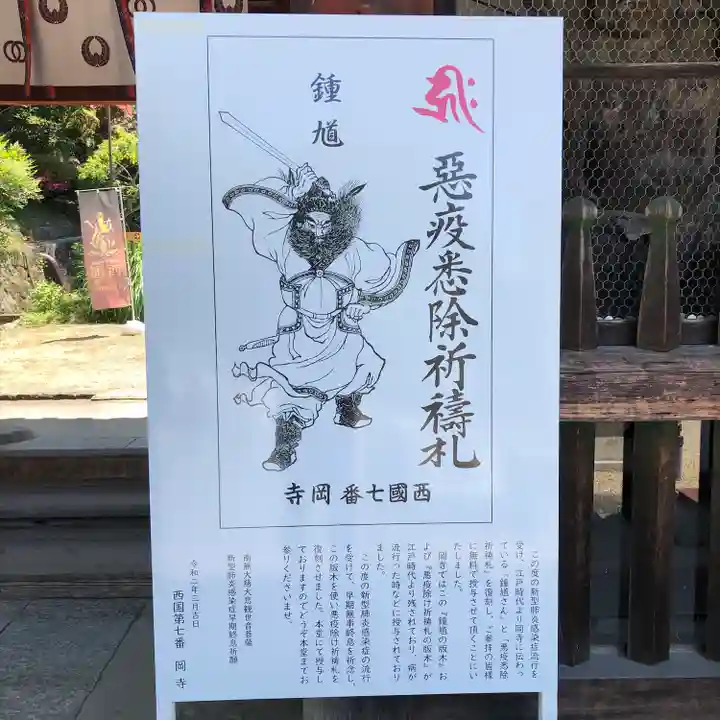 悪疫悉除祈禱札
鍾馗
西國七番岡寺
この度の新型肺炎感染症の流行を
受け、江戸時代より岡寺に伝わっ
ている『鍾馗さん』と『悪疫悉除
祈祷札』を復刻し、ご参拝の皆様
に無料で授与させて頂くことにい
たしました。
岡寺ではこの『鍾馗の版木』お
よび『悪疫除け祈祷札の版木』が
江戸時代より残されており、病が
流行った時などに授与されており
ました。
この度の新型肺炎感染症の流行
を受けて、早期無事終息を祈念し、
この版木を使い悪疫除け祈祷札を
復刻させました。本堂にて授与し
ておりますのでどうぞ本堂までお
参りくださいませ。
南無大慈大悲観世音菩薩
新型肺炎感染症早期終息祈願
令和二年三月吉日
西国第七番 岡寺